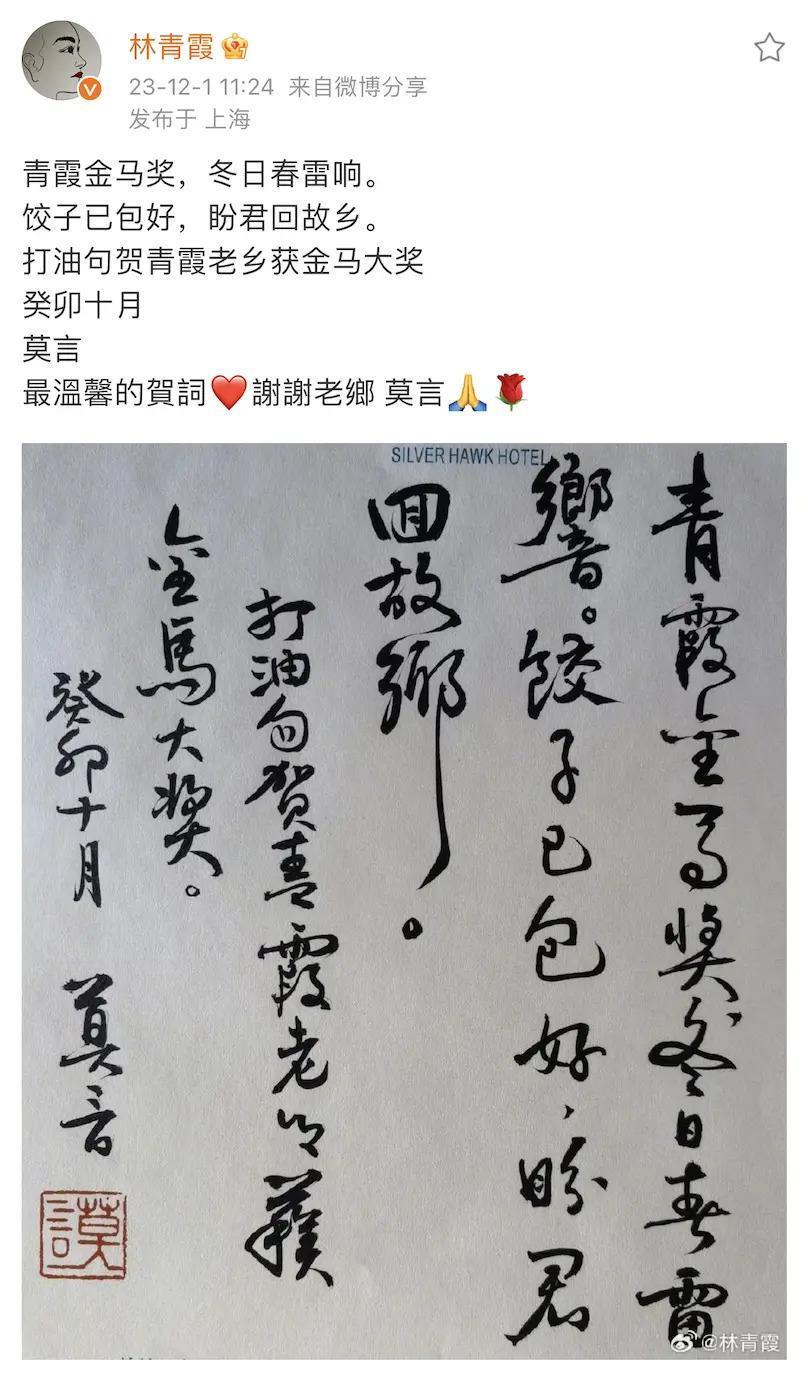 林青霞
23-12-1 11:24 来自微博分享
发布于 上海
青霞金马奖，冬日春雷响。
饺子已包好，盼君回故乡。
打油句贺青霞老乡获金马大奖
癸卯十月
莫言
最溫馨的賀詞❤️謝謝老鄉 莫言🙏🌹
SILVER HAWK HOTEL
青霞金馬奬冬日春雷
響。餃子已包好，盼君
回故鄉。
打油句贺青霞老乡獲
金馬大奬。
癸卯十月 莫言
謨
@林青霞